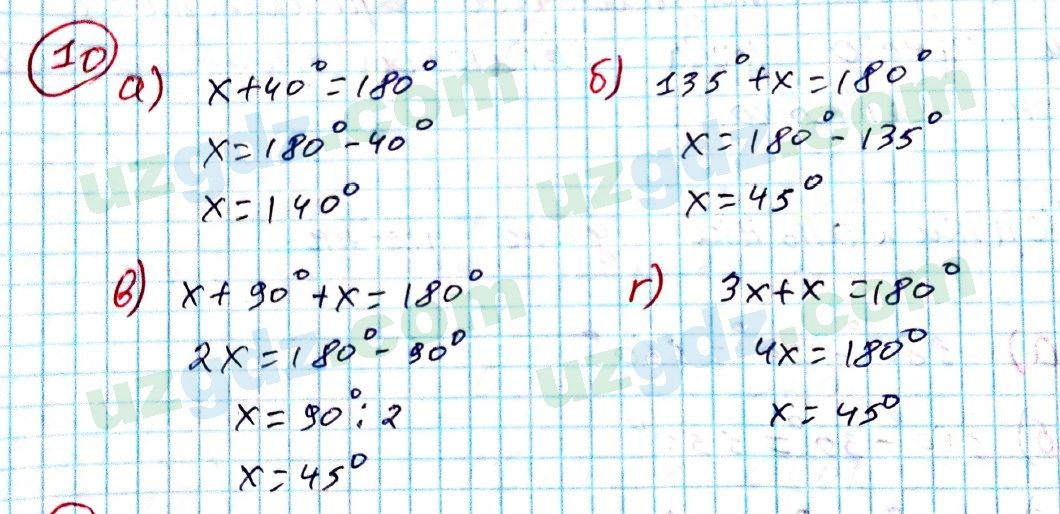 10
а) x+40°=180°
x=180°-40°
x=140°
б) 135°+x=180°
x=180°-135°
x=45°
в) x+90°+x=180°
2x=180°-90°
x=90°:2
x=45°
г) 3x+x=180°
4x=180°
x=45°
uzgdz.com
uzgdz.com
uzgdz.com
uzgdz.com